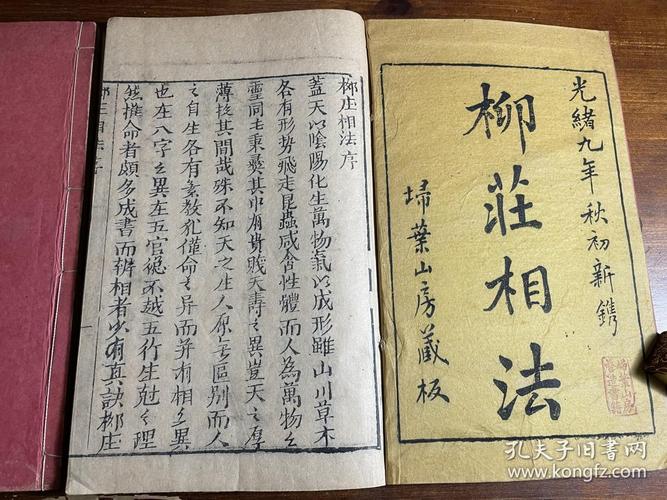 光緒九年秋初新鐫
柳莊相法
埽葉山房藏板
柳庄相法序
蓋天以陰陽化生萬物氣以成形雖山川草木
各有形勢飛走昆蟲咸含性體而人為萬物之
同秉彝其中有貴賤夭壽之異豈天之厚
薄於其間哉殊不知天之生人原無區別而人
之自生各有僅命之异而并有相之異
也在八字之異在五官總不越五行生尅之理
然推命者頗多成書而辨相者少有真訣柳庄
孔夫子旧书网
www.kongfz.com